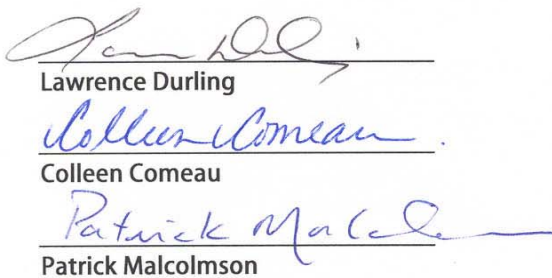 Lawrence Durling
Colleen Comeau
Colleen Comeau
Patrick
Patrick Malcolmson